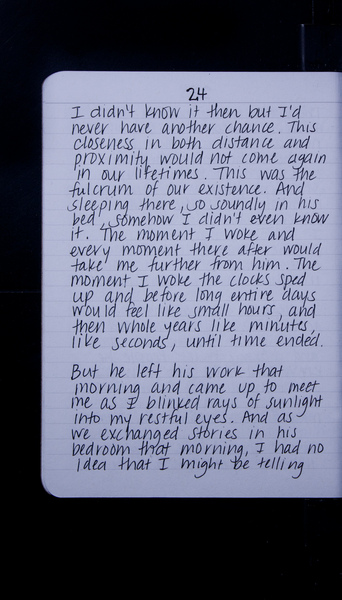 24
I didn't know it then but I'd
never have another chance. This
closeness in both distance and
proximity would not come again
in our lifetimes. This was the
fulcrum of our existence. And
sleeping there, so soundly in his
bed, somehow I didn't even know
it. The moment I woke and
every moment there after would
take me further from him. The
moment I woke the clocks sped
up and before long entire days
would feel like small hours, and
then whole years like minutes,
like seconds, until time ended.
But he left his work that
morning and came up to meet
me as I blinked rays of sunlight
into my restful eyes. And as
we exchanged stories in his
bedroom that morning, I had no
idea that I might be telling